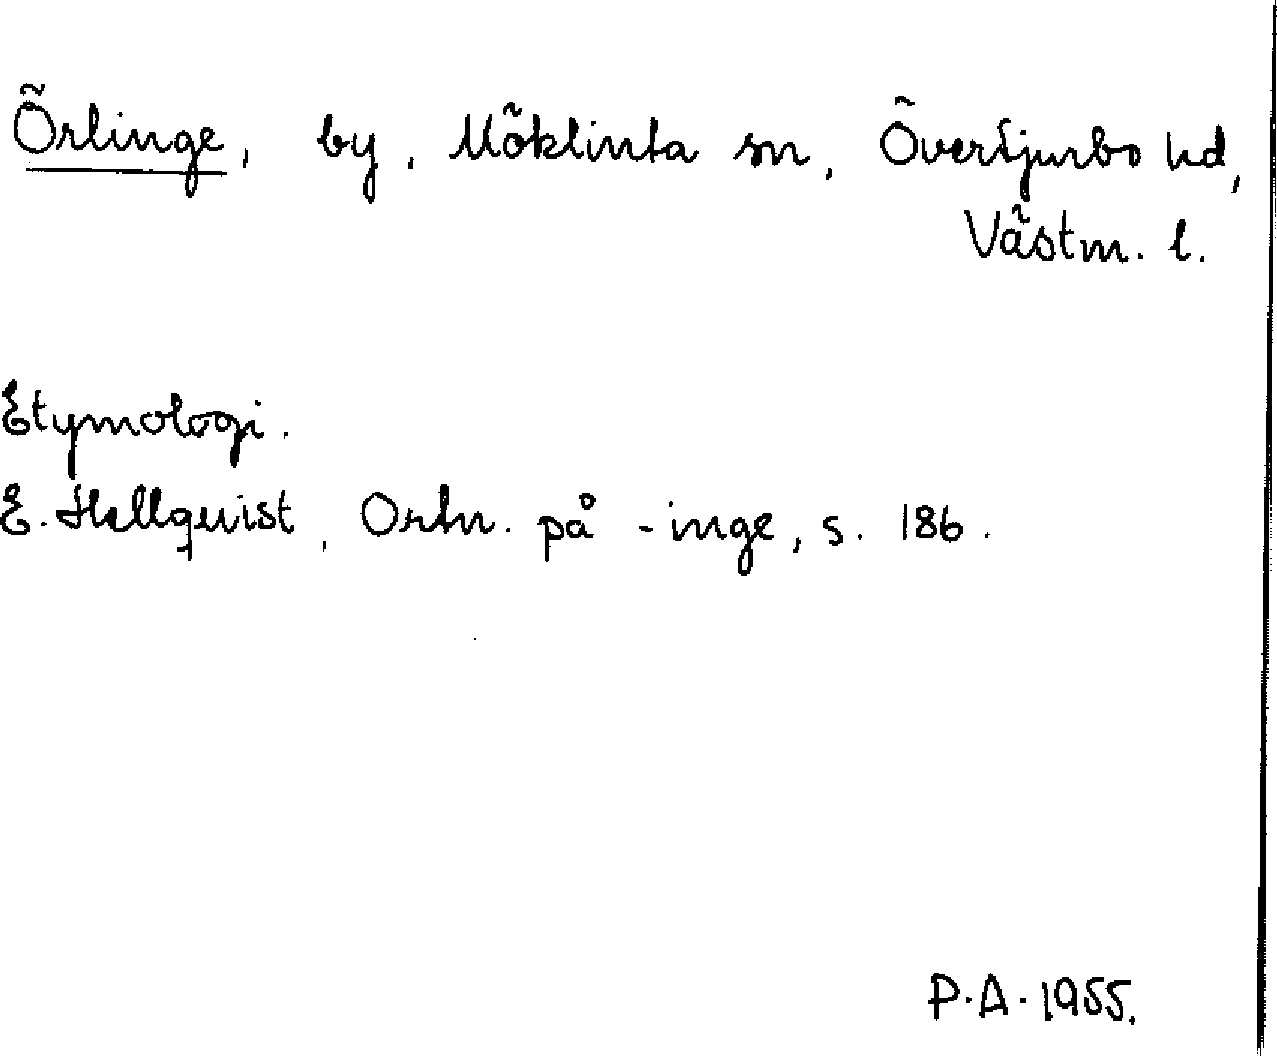 Örlinge, by, Möklinta sn, Övertjurbo hd,
Västm. l.
Etymologi.
E. Hellquist, Ortn. på -inge, s. 186.
P.A. 1955.